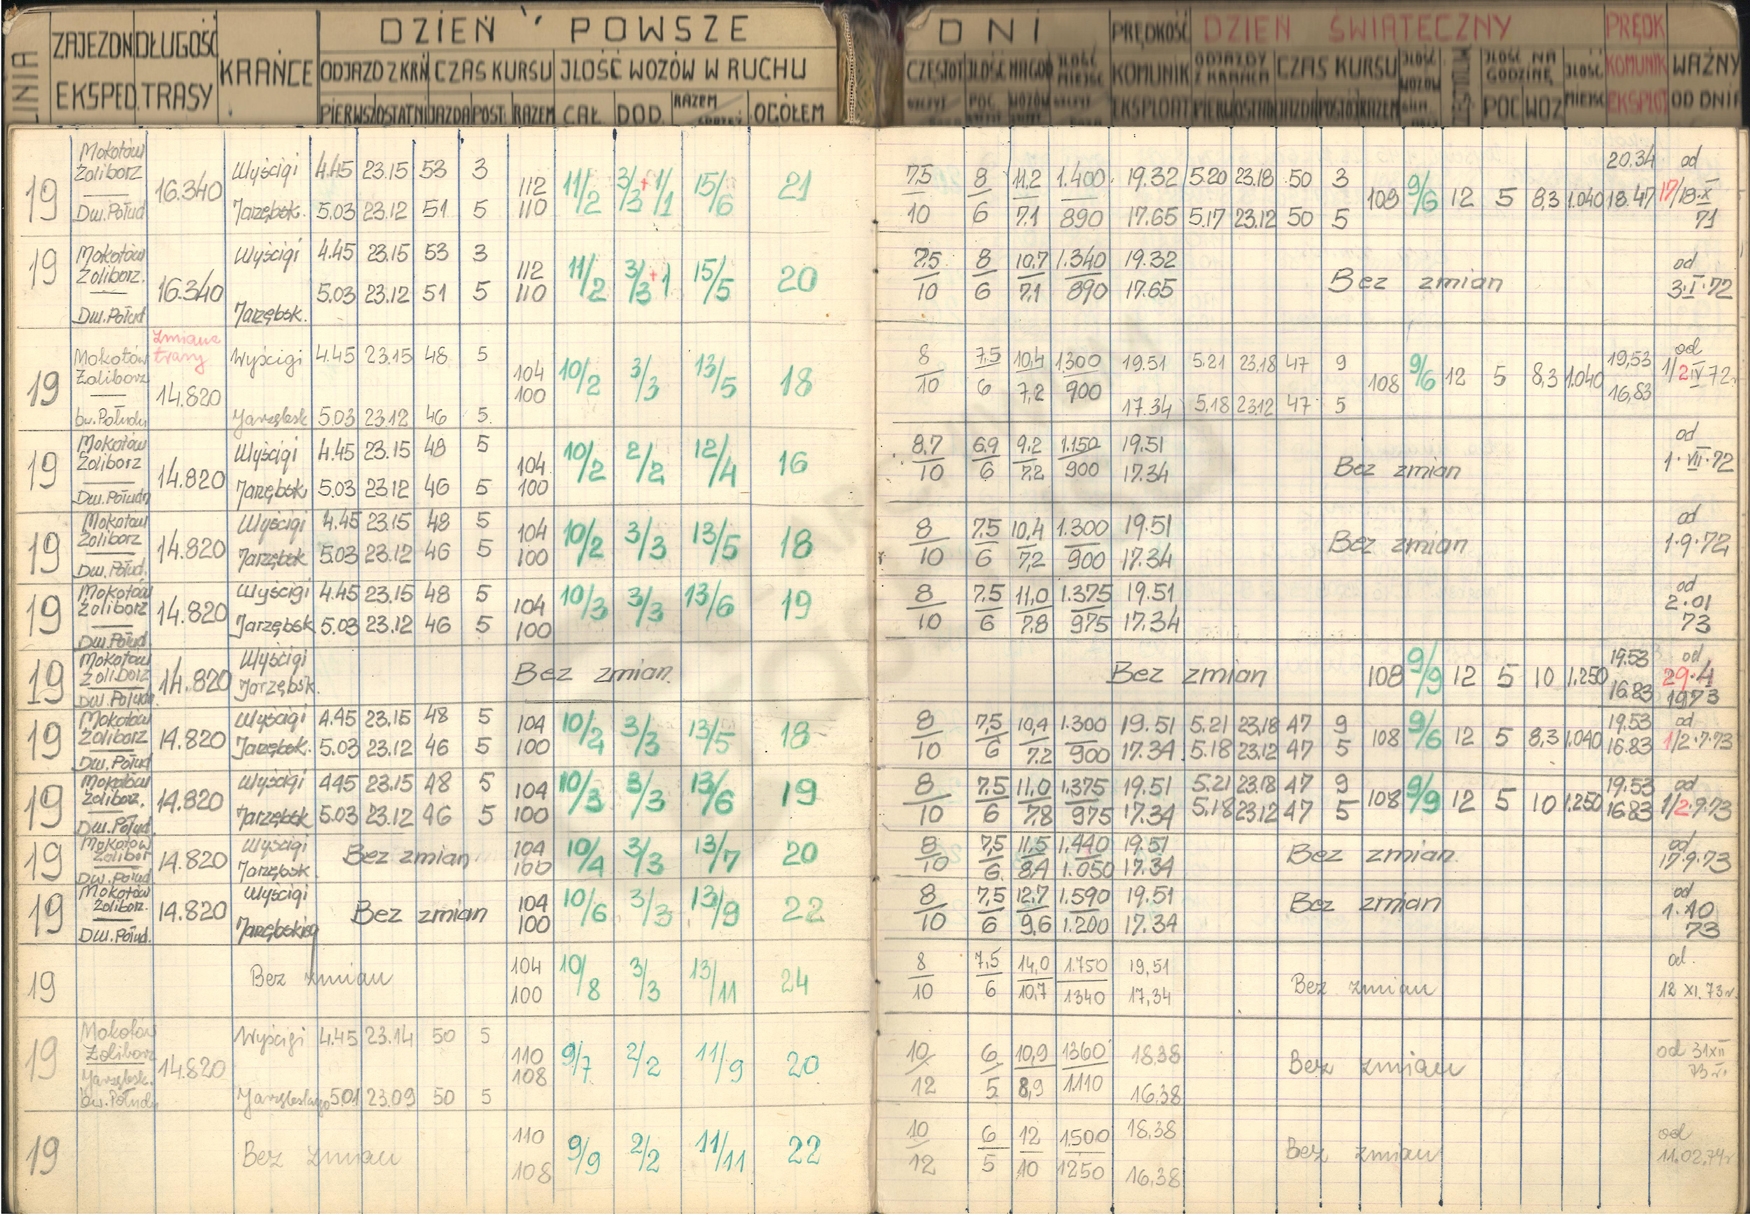 LINIA ZAJEZDN EKSPED. DŁUGOŚĆ TRASY KRAŃCE DZIEŃ POWSZE DNI PRĘDKOŚĆ KOMUNIK EKSPLOAT DZIEŃ ŚWIĄTECZNY PRĘDK KOMUNIK EKSPLOT WAŻNY OD DNIA
ODJAZD Z KRŃ CZAS KURSU JLOŚĆ WOZÓW W RUCHU
PIERWSZ OSTATNI JAZDA POST. RAZEM CAŁ. DOD. RAZEM OGÓŁEM
CZĘSTOT JLOŚĆ NA GOD JLOŚĆ MIEJSC ODJAZDY Z KRAŃCA CZAS KURSU JLOŚĆ WOZÓW JLOŚĆ NA GODZINĘ JLOŚĆ MIEJSC
PIERW OSTATN JAZDA POSTÓJ RAZEM POC WOZ
19 Mokotów Żoliborz Dw. Połud 16.340 Wyścigi 4.45 23.15 53 3 112 11/2 3/3 + 1/1 15/6 21 7.5 8 11,2 1.400 19.32 5.20 23.18 50 3 108 9/6 12 5 8,3 1.040 20.34 od
Jarzębsk. 5.03 23.12 51 5 110 10 6 7.1 890 17.65 5.17 23.12 50 5 18.47 17/18.X 71
19 Mokotów Żoliborz. Dw. Połud 16.340 Wyścigi 4.45 23.15 53 3 112 11/2 3/3 + 1 15/5 20 7,5 8 10,7 1.340 19.32 Bez zmian od
Jarzębsk. 5.03 23.12 51 5 110 10 6 7.1 890 17.65 3.I.72
Zmiana trasy
19 Mokotów Żoliborz Dw. Połudn 14.820 Wyścigi 4.45 23.15 48 5 104 10/2 3/3 13/5 18 8 7,5 10,4 1300 19.51 5.21 23.18 47 9 108 9/6 12 5 8,3 1.040 19,53 od
Jarzębsk 5.03 23.12 46 5. 100 10 6 7,2 900 17.34 5.18 23.12 47 5 16,83 1/2 IV 72.
19 Mokotów Żoliborz Dw. Połudn 14.820 Wyścigi 4.45 23.15 48 5 104 10/2 2/2 12/4 16 8,7 6.9 9,2 1.150 19.51 Bez zmian od
Jarzębsk 5.03 23.12 46 5 100 10 6 7.2 900 17.34 1.VII.72
19 Mokotów Żoliborz Dw. Połud. 14.820 Wyścigi 4.45 23.15 48 5 104 10/2 3/3 13/5 18 8 7.5 10,4 1.300 19.51 Bez zmian od
Jarzębsk 5.03 23.12 46 5 100 10 6 7,2 900 17.34 1.9.72
19 Mokotów Żoliborz Dw. Połud 14.820 Wyścigi 4.45 23.15 48 5 104 10/3 3/3 13/6 19 8 7.5 11,0 1.375 19.51 od
Jarzębsk 5.03 23.12 46 5 100 10 6 7.8 975 17.34 2.01 73
19 Mokotów Żoliborz Dw. Połudn 14.820 Wyścigi Jarzębsk. Bez zmian. Bez zmian 108 9/9 12 5 10 1.250 19.53 16.83 od 29.4 1973
19 Mokotów Żoliborz Dw. Połud 14.820 Wyścigi 4.45 23.15 48 5 104 10/2 3/3 13/5 18 8 7,5 10,4 1.300 19.51 5.21 23,18 47 9 108 9/6 12 5 8,3 1.040 19.53 od
Jarzębsk. 5.03 23.12 46 5 100 10 6 7.2 900 17.34 5.18 23.12 47 5 16.83 1/2.7.73
19 Mokotów Żoliborz. Dw. Połud. 14.820 Wyścigi 4.45 23.15 48 5 104 10/3 3/3 13/6 19 8 7.5 11,0 1.375 19.51 5.21 23.18 47 9 108 9/9 12 5 10 1.250 19.53 od
Jarzębsk 5.03 23.12 46 5 100 10 6 7.8 975 17.34 5.18 23.12 47 5 16.83 1/2.9.73
19 Mokotów Żolibor Dw. Połud 14.820 Wyścigi Jarzębsk. Bez zmian 104 10/4 3/3 13/7 20 8 7,5 11,5 1.440 19.51 Bez zmian. od
100 10 6 8,4 1.050 17.34 17.9.73
19 Mokotów Żoliborz. Dw. Połud. 14.820 Wyścigi Jarzębskieg Bez zmian 104 10/6 3/3 13/9 22 8 7,5 12.7 1.590 19.51 Bez zmian od
100 10 6 9,6 1.200 17.34 1.10 73
19 Bez zmian 104 10/8 3/3 13/11 24 8 7,5 14,0 1.750 19,51 Bez zmian od.
100 10 6 10,7 1340 17,34 12 XI.73r.
19 Mokotów Żoliborz Jarzębsk. Dw. Połudn 14.820 Wyścigi 4.45 23.14 50 5 110 9/7 2/2 11/9 20 10 6 10,9 1360 18,38 Bez zmian od 31 XII
Jarzębskiego 5.01 23.09 50 5 108 12 5 8,9 1110 16,38 73 r.
19 Bez zmian 110 9/9 2/2 11/11 22 10 6 12 1500 18,38 Bez zmian od
108 12 5 10 1250 16,38 11.02.74r